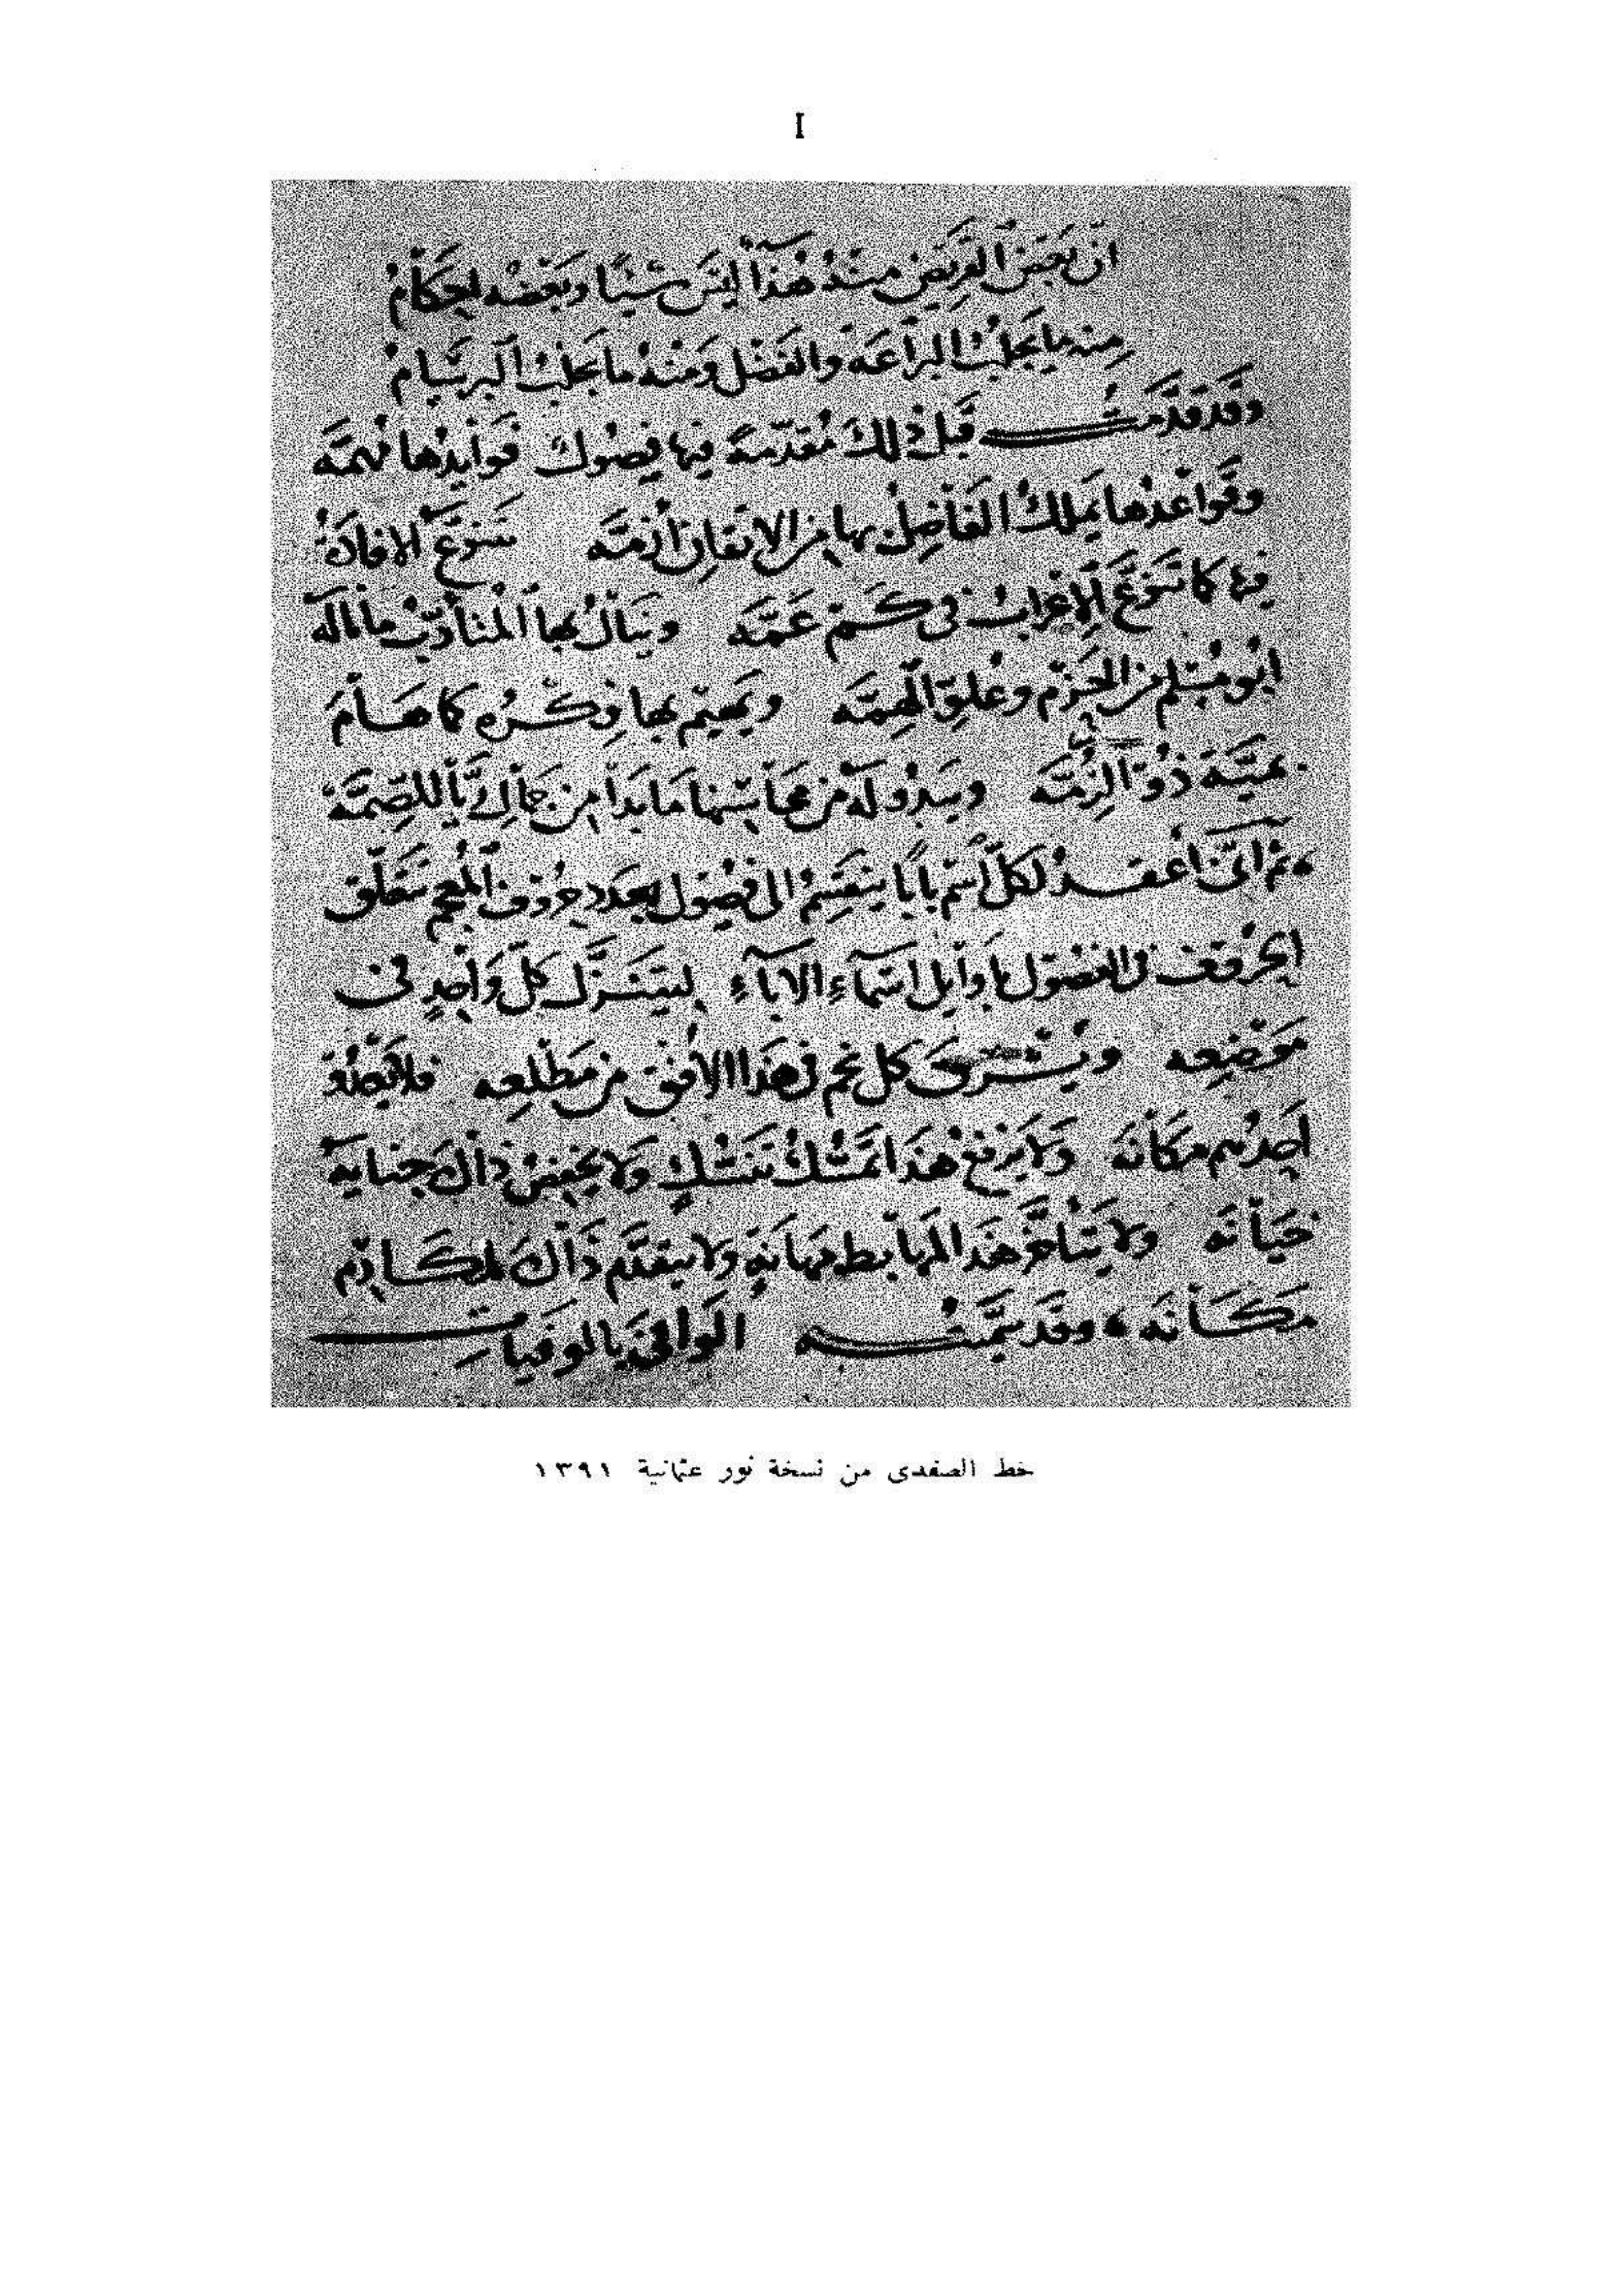 I
ان بعض القريض منه هذاء ليس شيئا وبعضه احكام
منه ما يجلب البراعة والفضل ومنه ما يجلب البرسام
وقد قدمت قبل ذلك مقدمة فيها فصول فوايدها مهمه
وقواعدها يملك الفاضل بها من الاتقان ازمه تتنوع الافادة
فيها كما تنوع الاعراب في كم عمه وينال بها المتأدب ما ناله
ابو مسلم من الحزم وعلو الهمه ويهيم بها فكره كما هام
بمية ذو الرمه ويبدو له من محاسنها ما بدا من جمال ريا للصمه
ثم اني اعقد لكل اسم بابا ينقسم الى فصول بعدد حروف المعجم تتعلق
الحروف في الفصول باوايل اسماء الاباء ليتنزل كل واحد في
موضعه ويشرق كل نجم في هذا الافق من مطلعه فلا يعدو
احدهم مكانه ولا يرفع هذا تمسك تنسك ولا يخفض ذاك جناية
خيانه ولا يتأخر هذا لمهابط مهانة ولا يتقدم ذاك لمكارم
مكانه وقد سميته الوافي بالوفيات
خط الصفدى من نسخة نور عثمانية ١٣٩١